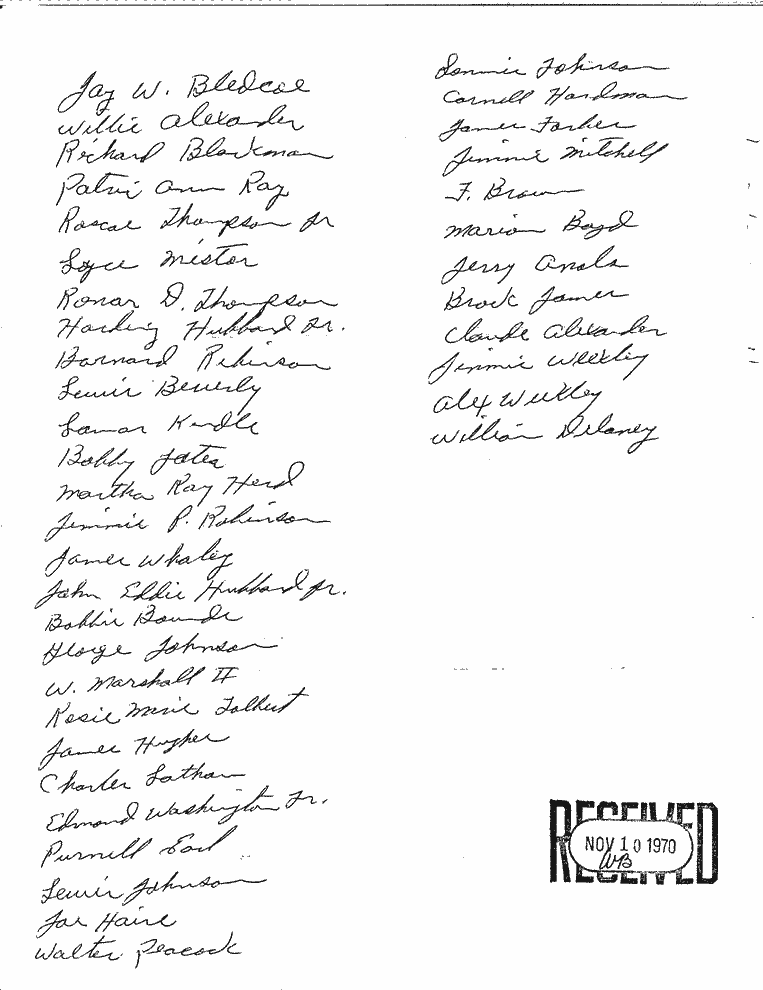 Jay W. Bledcoe
Willie Alexander
Richard Blackman
Patri Ann Ray
Roscoe Thompson Jr
Loyce Mister
Ronar D. Thompson
Harding Hubbard Jr.
Barnard Robinson
Lewis Beverly
Lamar Kindle
Bobby Yates
Martha Ray Herd
Jimmie P. Robinson
James Whaley
John Eddie Hubbard Jr.
Bobbie Bounds
George Johnson
W. Marshall II
Rosie Marie Tolbert
James Hughes
Charles Latham
Edmond Washington Jr.
Purnell Earl
Lewis Johnson
Joe Haire
Walter Peacock
Lonnie Johnson
Cornell Hardman
James
Jimmie Mitchell
F. Brown
Marion Boyd
Jerry
Brock James
Claude Alexander
Jimmie Weekley
Alex Weekley
William Delaney
RECEIVED
NOV 10 1970
WB